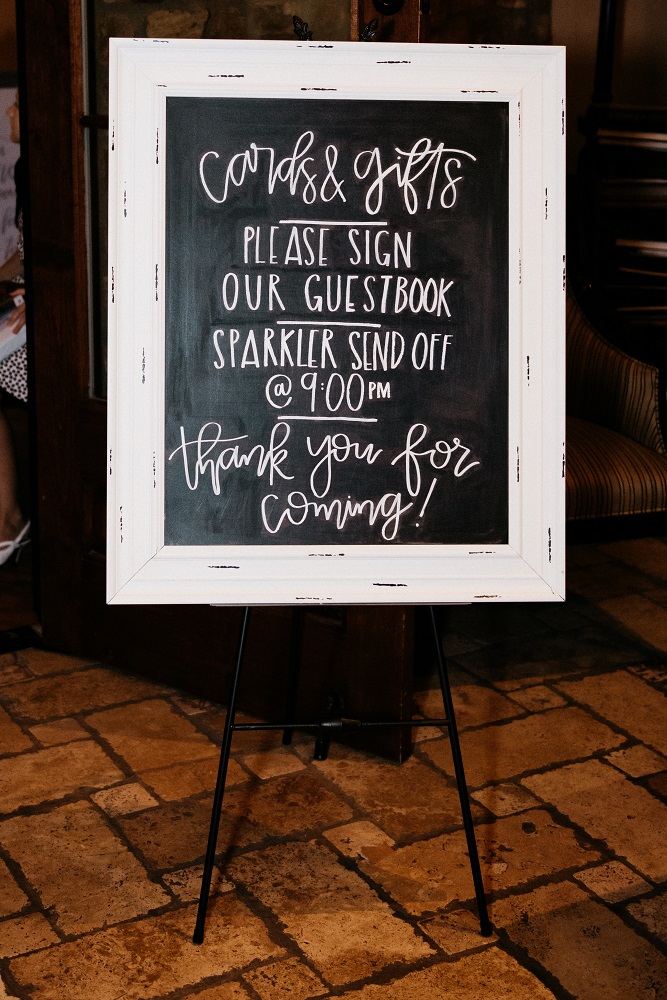 cards & gifts
PLEASE SIGN
OUR GUESTBOOK
SPARKLER SEND OFF
@ 9:00 PM
thank you for
coming!